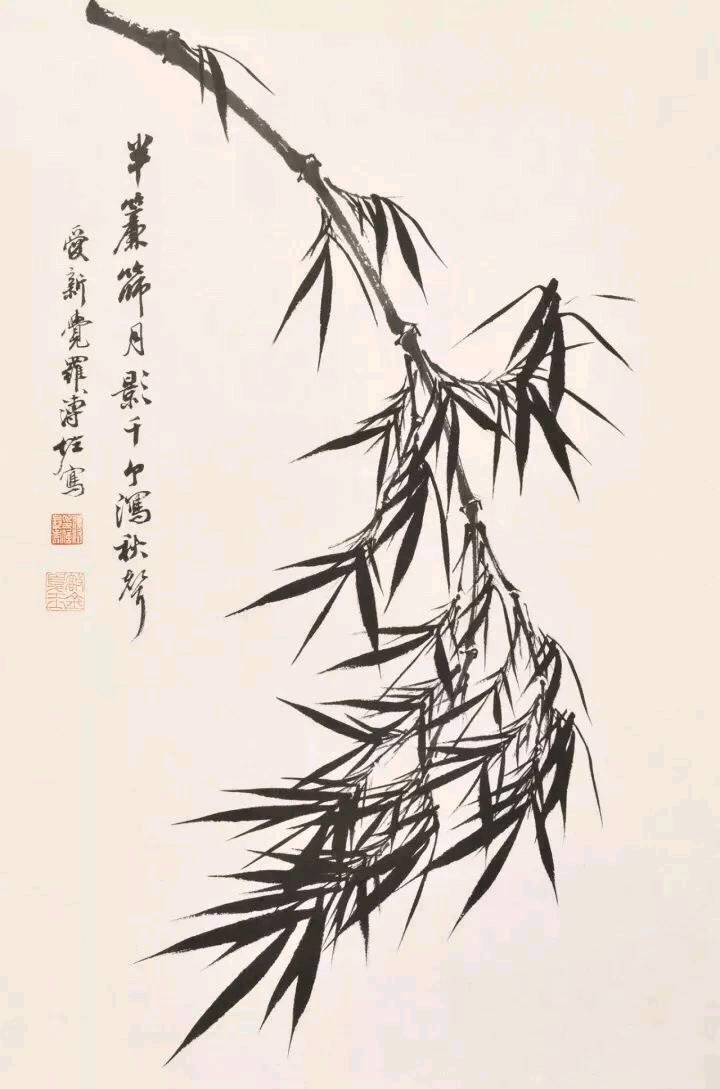 半簾篩月影千个瀉秋聲
愛新覺羅溥佺寫